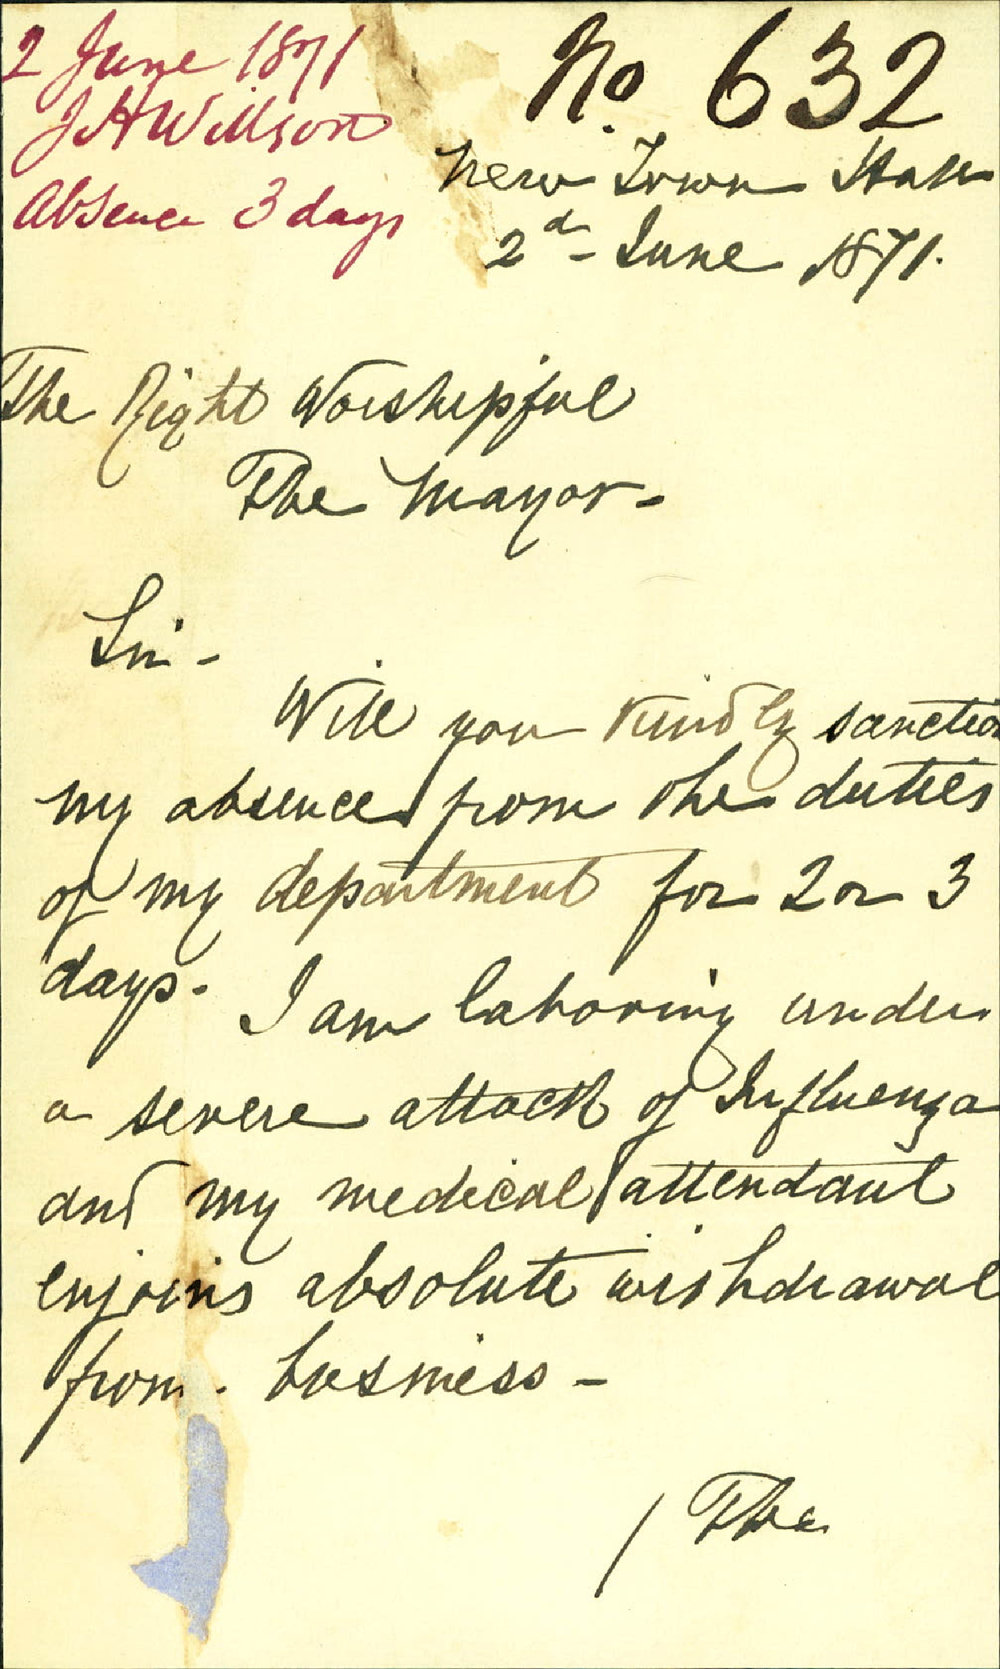 2 June 1871
J H Willson
Absence 3 days
No. 632
New Town Hall
2d - June 1871.
The Right Worshipful
The Mayor -
Sir -
Will you kindly sanction
my absence from the duties
of my department for 2 or 3
days. I am laboring under
a severe attack of Influenza
and my medical attendant
enjoins absolute withdrawal
from . business -
/ The